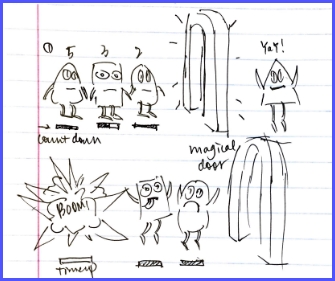 ① 5 3 2
Yay!
→ count down
magical
door
BOOM!
timeup